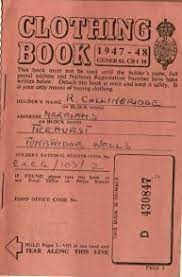 CLOTHING
BOOK 1947-48
GENERAL CB 1/8
This book must not be used until the holder's name, full
postal address and National Registration Number have been
written below. Detach this book at once and keep it safe. It
is your only means of buying clothing.
HOLDER'S NAME R. COLLINGRIDGE
(in BLOCK letters)
ADDRESS NORMANS
(in BLOCK letters)
TUNBRIDGE WELLS
HOLDER'S NATIONAL REGISTRATION No.
/103/2
FOOD OFFICE CODE No.
THIS BOOK IS NUMBER
D 430847
HOLD Pages I.—VIII in one hand and
TEAR ALONG THIS LINE
PAGE I